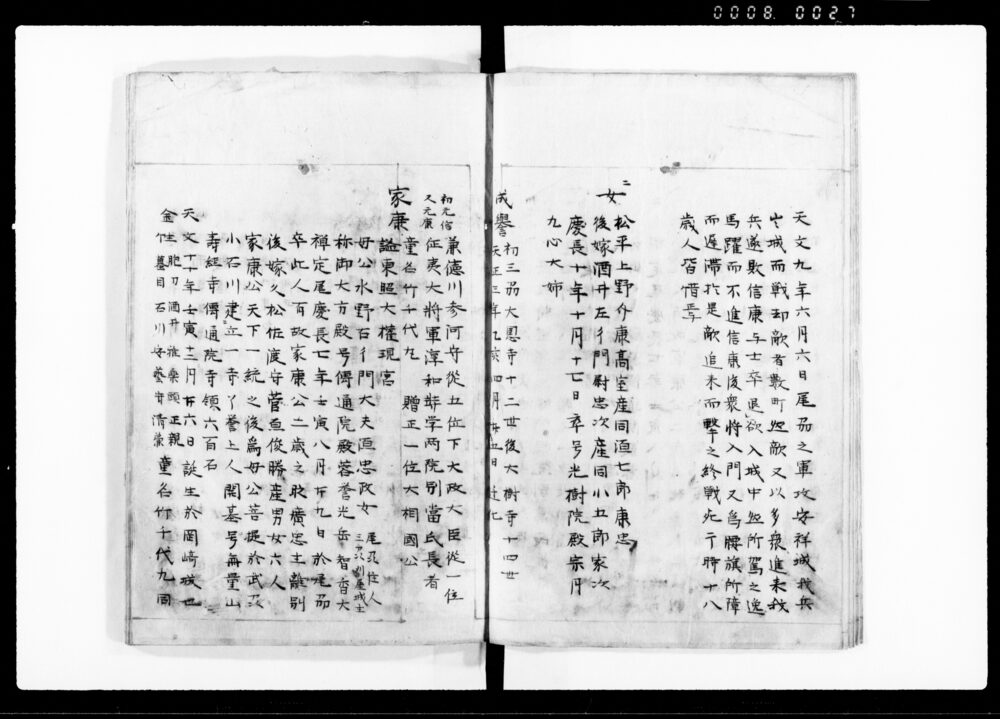 0008 0027
天文九年六月六日尾刕之軍攻安祥城我兵
出城而戦却敵者数町然敵又以多衆進来我
兵遂敗信康与士卒退欲入城中然所駕之逸
馬躍而不進信康後衆将入門又為腰旗所障
而遅滞於是敵追来而撃之終戦死于時十八
歳人皆惜焉
二女
松平上野介康高室産同洹七郎康忠
後嫁酒井左衛門尉忠次産同小五郎家次
慶長十年十月十七日卒号光樹院殿宗月
九心大姉
成誉
初三刕大恩寺十二世後大樹寺十四世
天正三年乙亥四月廿五日遷化
初元信
又元康
家康
兼徳川参河守従五位下大政大臣従一位
征夷大将軍淳和弉学両院別当氏長者
童名竹千代丸 贈正一位大相國公
謚東照大権現宮
母公水野右衛門大夫洹忠政女
尾刕住人
三刕刈屋城主
称御大方殿号傳通院殿蓉誉光岳智香大
禅定尼慶長七年壬寅八月廿九日於尾刕
卒此人有故家康公二歳之時廣忠主離別
後嫁久松佐渡守菅原俊勝産男女六人
家康公天下一統之後為母公菩提於武刕
小石川建立一寺了誉上人開基号無量山
壽経寺傳通院寺領六百石
天文十一年壬寅十二月廿六日誕生於岡崎城也
胞刀酒井雅楽頭正親
蟇目石川安藝守清兼
童名竹千代九同